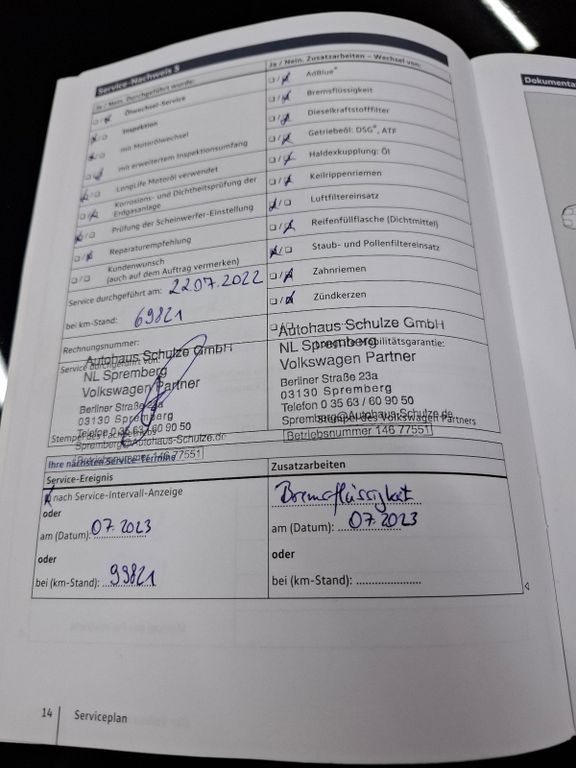 Service-Nachweis 5
Dokumenta
Ja / Nein. Durchgeführt wurde:
Ölwechsel-Service
Inspektion
mit Motorölwechsel
mit erweitertem Inspektionsumfang
LongLife Motoröl verwendet
Korrosions- und Dichtheitsprüfung der
Erdgasanlage
Prüfung der Scheinwerfer-Einstellung
Reparaturempfehlung
Kundenwunsch
(auch auf dem Auftrag vermerken)
Service durchgeführt am: 22.07.2022
bei km-Stand: 69821
Rechnungsnummer:
Service durchgeführt von:
Autohaus Schulze GmbH
NL Spremberg
Volkswagen Partner
Berliner Straße 23a
03130 Spremberg
Telefon 0 35 63 / 60 90 50
Spremberg@Autohaus-Schulze.de
Betriebsnummer 146 77551
Stempel des
Ja / Nein. Zusatzarbeiten – Wechsel von:
AdBlue®
Bremsflüssigkeit
Dieselkraftstofffilter
Getriebeöl: DSG®, ATF
Haldexkupplung: Öl
Keilrippenriemen
Luftfiltereinsatz
Reifenfüllflasche (Dichtmittel)
Staub- und Pollenfiltereinsatz
Zahnriemen
Zündkerzen
Autohaus Schulze GmbH
NL Spremberg
Volkswagen Partner
Berliner Straße 23a
03130 Spremberg
Telefon 0 35 63 / 60 90 50
Spremberg@Autohaus-Schulze.de
Stempel des Volkswagen Partners
Betriebsnummer 146 77551
Ihre nächsten Service-Termine
Service-Ereignis
nach Service-Intervall-Anzeige
oder
am (Datum): 07.2023
oder
bei (km-Stand): 99821
Zusatzarbeiten
Bremsflüssigkeit
am (Datum): 07.2023
oder
bei (km-Stand):
14
Serviceplan